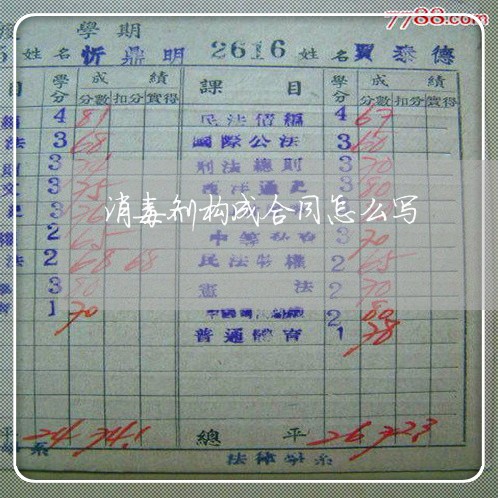 7788.com
學期
姓名 忻鼎明 2616 姓名 賈泰德
目 學分 成績 課目 學分 成績
分數 扣分 實得 分數 扣分 實得
4 81 民法債編 4 67
法 3 68 國際公法 3 60
3 刑法總則 3 70
3 75 3 80
3
消毒剂构成合同怎么写
2 65 3 70
法 2 68 68 民法物權 2 65
3 80 憲法 2 70
1 70 2 80
普通體育 1 78
平 24 74.1 總平 26 72.3
系 法律學系